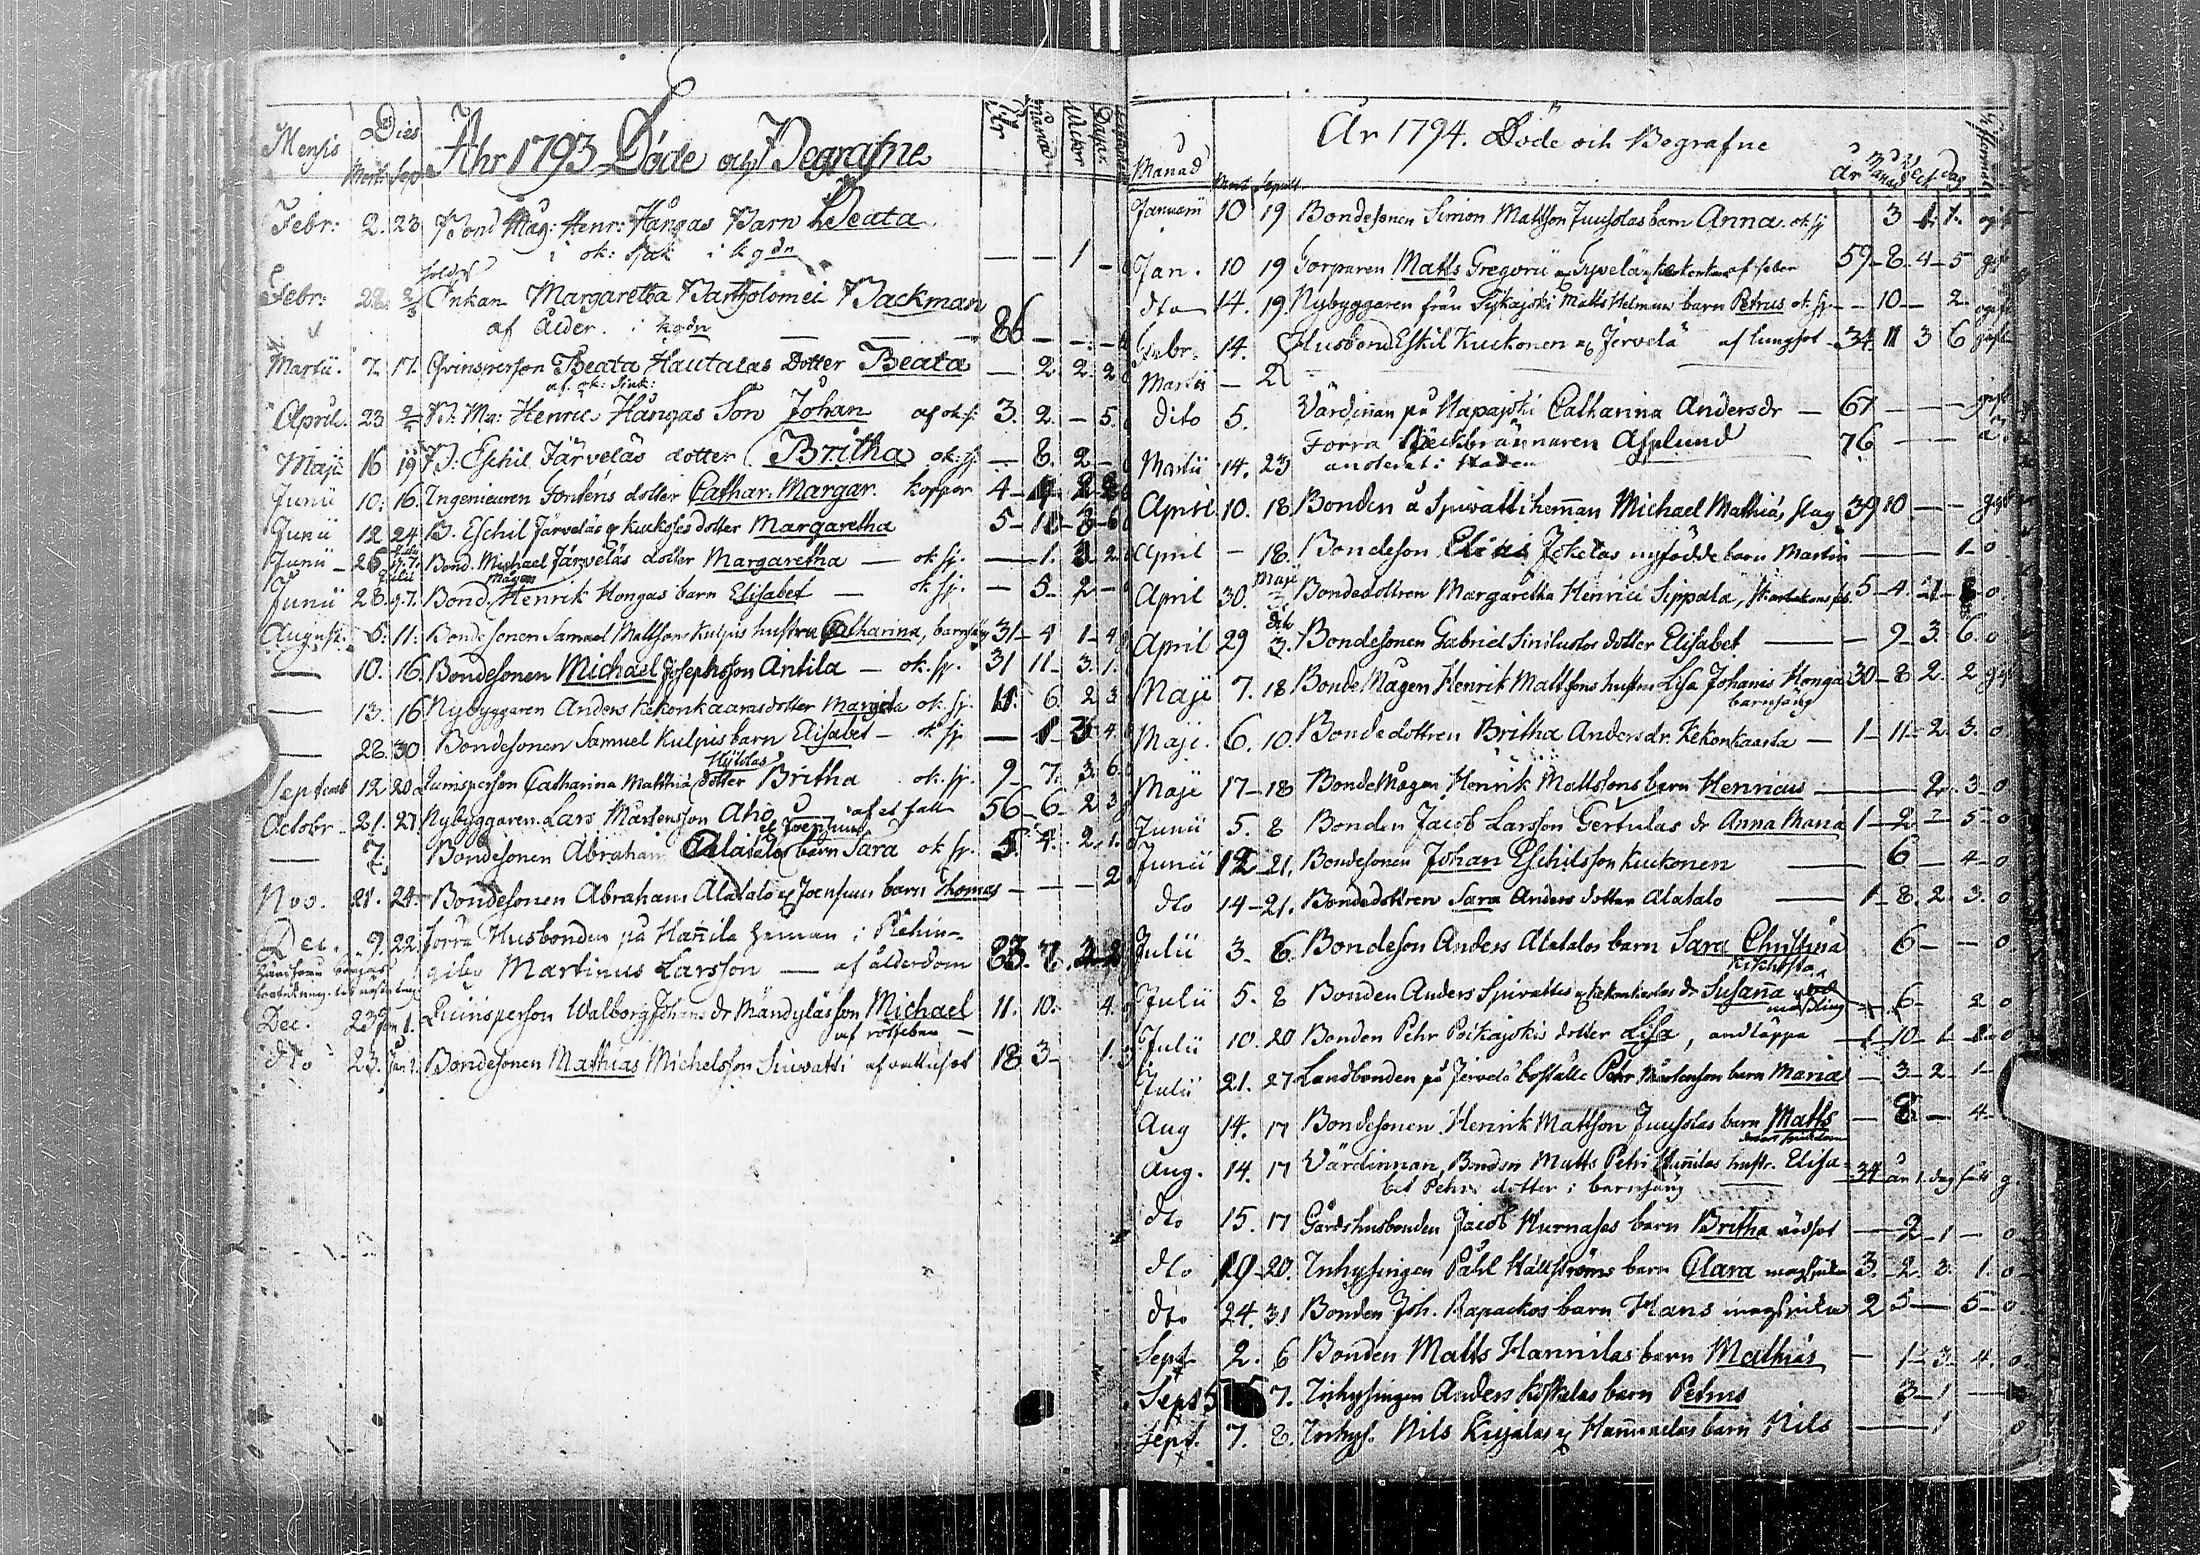 Mensis Dies Ahr 1793 Döde och Begrafne
Mort: Sep
Febr: 2. 23 Bond Måg: Henr: Hångas Barn Beata
i ok: sjuk i kgdn — — 1 —
Febr: 28. 2/3 Enkan Margaretha Bartholomei Backman
af ålder. i kgdn 86
Martii. 7. 17. Qvinsperson Beata Hautalas Dotter Beata — 2. 2. 2
af ok: sjuk:
April. 23 B. Mg: Henric Hångas Son Johan af ok: sj. 3. 2. — 5.
Maji 16 19 B: Eschil Järveläs dotter Britha ok: sj. — 8. 2 —
Junii 10. 16. Ingenieuren dotter Cathar. Margar. koppor 4
Junii 12 24 B. Eschil Järveläs dotter Margaretha 5
Junii 26 Bond. Michael Järveläs dotter Margaretha — ok. sj. — 1. 3 2
Junii 28. Bond. Mågen Henrik Hongas barn Elisabet — ok. sj. — 5 — 2 —
August. 6. 11. Bondesonen Samuel Mattsons Kulpis hustru Catharina, barnsäng 31 — 4 1 — 4
— 10. 16. Bondesonen Michael Josephsson Antila — ok. sj. 31 11 — 3. 1.
— 13. 16 Nybyggaren Anders Kekonkaarasdotter Margeta ok. sj. 11. 6. 2 3
— 28. 30 Bondesonen Samuel Kulpis barn Elisabet — ok sj. — 1 3 4
Septemb 12 20 Qvinsperson Catharina Matthiæ dotter Britha ok. sj. 9 — 7. 3. 6.
Octobr. 21. 27 Nybyggaren Lars Mårtensson Aho — af et fall 56 — 6 — 2 3
— 7. Bondesonen Abraham Alatalos barn Sara ok sj. 5. 4. 2. 1.
Nov. 21. 24 — Bondesonen Abraham Alatalo Joensuun barn Thomas — — — 2
Dec. 9. 22 förra Husbonden på Hannila heman i
Martinus Larsson — af ålderdom 83.
Dec. 23 Jan 1. Qvinsperson Walborg Johans dr Mändyläs son Michael 11. 10. 4.
af rötfeber —
dto 23. Jan 1. Bondesonen Mathias Michelsson Siivatti af vattusot 18 3 — 1.
År 1794. Döde och Begrafne
Månad Mort Sepult. År Månad Veck Dag
Januarii 10 19 Bondesonen Simon Mattson Juusolas barn Anna. ok sj 3 1. 1.
Jan. 10 19 Torparen Matts Gregorii 59 — 8 — 4 — 5 gift
dto 14. 19. Nybyggaren från Matts barn Petrus ok. sj. — 10 — 2. ogift
Febr. 14. Husbond Eskil Kuckonen Jervelä af lungsot 34. 11 3 6 gift
Martii — 2
dito 5. Värdinnan på Napajski Catharina Andersdr — 67 — — — gift
Martii 14. 23 Förra Asplund 76 — —
April 10. 18. Bonden å heman Michael Mathiæ, slag 39 10 — — gift
April — 18. Bondeson Jokelas nyfödde barn Martin — — 1 — 0.
April 30. Maji Bondedottren Margaretha Henrici Sippala, 5 — 4.
April 29 dito 3. Bondesonen Gabriel dotter Elisabet — — 9 — 3. 6. 0
Maji 7. 18 Bonde Mågen Henrik Mattsons hustru Lisa Johanis Honga 30 — 8 2. 2 gift
barnsäng
Maji. 6. 10. Bondedottren Britha Andersdr. Kekonkaarta — 1 — 11 — 2. 3. 0
Maji 17 — 18 Bonde Mågen Henrik Mattssons barn Henricus — 2. 3 — 0
Junii 5. 8 Bonden Jacob Larsson Gertulas dr Anna Maria 1 — 2 — 5 — 0
Junii 12 — 21. Bondesonen Johan Eschilsson Kuckonen — 6 — 4 — 0
dto 14 — 21. Bondedottren Sara Anders dotter Alatalo — 1 — 8. 2. 3. 0
Julii 3. 6. Bondeson Anders Alatalos barn Sara Christina 6 — — 0
kikhosta
Julii 5. 8 Bonden Anders dr Susanna 6 — 2 0
Julii 10. 20 Bonden Pehr Poikajskis dotter Lisa, andtäppa — 1 — 10 — 1
Julii 21. 27 Landbonden på Jervelä boställe Pehr Mårtenson barn Maria — 3 — 2 — 1 —
Aug 14. 17 Bondesonen Henrik Mattson Juusolas barn Matts — 8 — 4 —
Aug. 14. 17 Värdinnan, Bonden Matts Petri Hannilas hustr. Elisa
bet Pehrs dotter i barnsäng 34 år 1. dag g.
dto 15. 17 Gårdshusbonden Jacob Hurnases barn Britha rödsot — 2 — 1 — 0
dto 19 — 20. Inhysingen Påhl Hällströms barn Clara 3. — 2. 3. 1. 0
dto 24. 31 Bonden Joh. Rapackos barn Hans 2 5 — 5 — 0.
Sept 2. 6 Bonden Matts Hannilas barn Mathias — 1 — 3. 4. 0
Sept 5 7. Inhysingen Anders Koskelas barn Petrus 3 — 1 —
Sept. 7. 8. Inhys. Nils Kujalas Hannilas barn Nils — 1 0